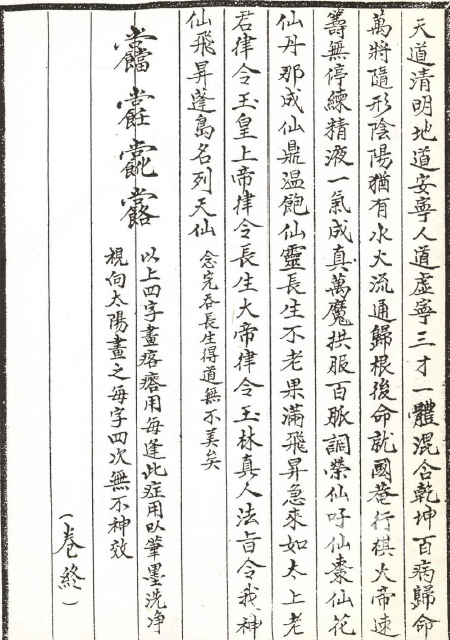 天道清明地道安寧人道虛寧三才一體混合乾坤百病歸命
萬將隨形陰陽猶有水火流通歸根後命就國菴行棋火帝速
籌無停練精液一氣成真萬魔拱服百脈調榮仙吁仙棗仙花
仙丹那成仙鼎溫飽仙靈長生不老果滿飛昇急來如太上老
君律令玉皇上帝律令長生大帝律令玉林真人法旨令我神
仙飛昇蓬島名列天仙
念完吞長生得道無不美矣
以上四字畫痞瘩用每逢此症用以筆墨洗净
視向太陽畫之每字四次無不神效
(卷終)